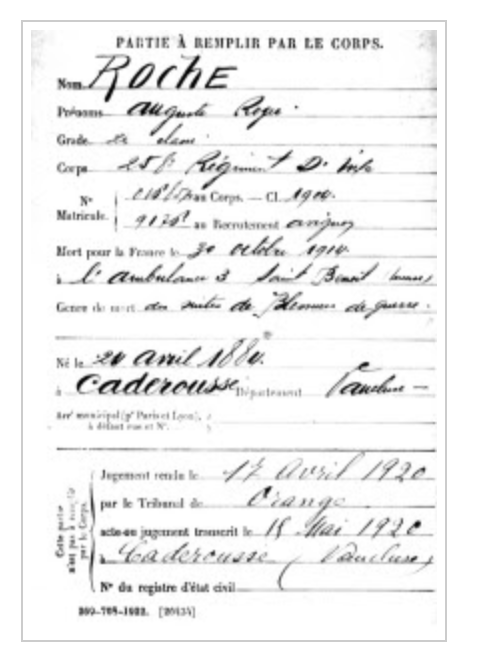 PARTIE À REMPLIR PAR LE CORPS.
Nom ROCHE
Prénoms Auguste Roger.
Grade 2e classe.
Corps 258e Régiment D' Inf.
Nº Matricule. au Corps. — Cl.
au Recrutement Avignon
Mort pour la France le 30 octobre 1914.
à l'ambulance 3 Saint Benoit (Meuse)
Genre de mort des suites de Blessures de guerre.
Né le 20 avril
à Caderousse Département Vaucluse —
Arrt municipal (pr Paris et Lyon),
à défaut rue et Nº.
Cette partie n'est pas à remplir par le Corps.
Jugement rendu le 17 Avril 1920
par le Tribunal de Orange
acte ou jugement transcrit le 18 Mai 1920
à Caderousse (Vaucluse)
Nº du registre d'état civil
[26434]